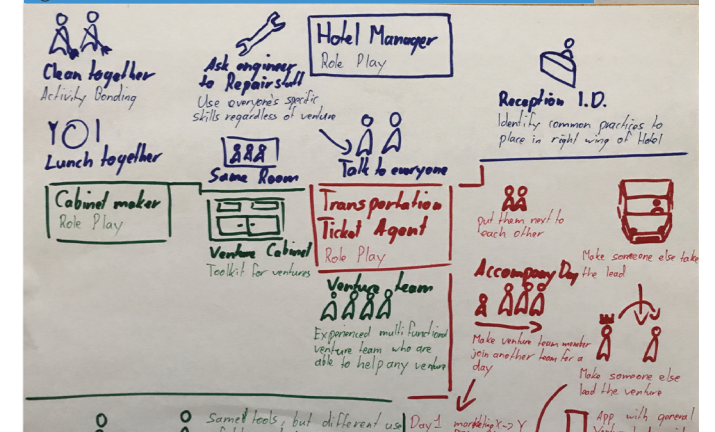 Clean together
Activity Bonding
Ask engineer
to Repair stuff
Use everyone's specific
skills regardless of venture
Hotel Manager
Role Play
Reception I.D.
Identify common practices to
place in right wing of Hotel
Lunch together
Same Room
Talk to everyone
Cabinet maker
Role Play
Venture Cabinet
Toolkit for ventures
Transportation
Ticket Agent
Role Play
Venture team
Experienced multi functional
venture team who are
able to help any venture
put them next to
each other
Make someone else take
the lead
Accompany Day
Make venture team member
join another team for a
day
Make someone else
lead the venture
Same tools, but different use
Day 1 marketing X -> Y
App with general